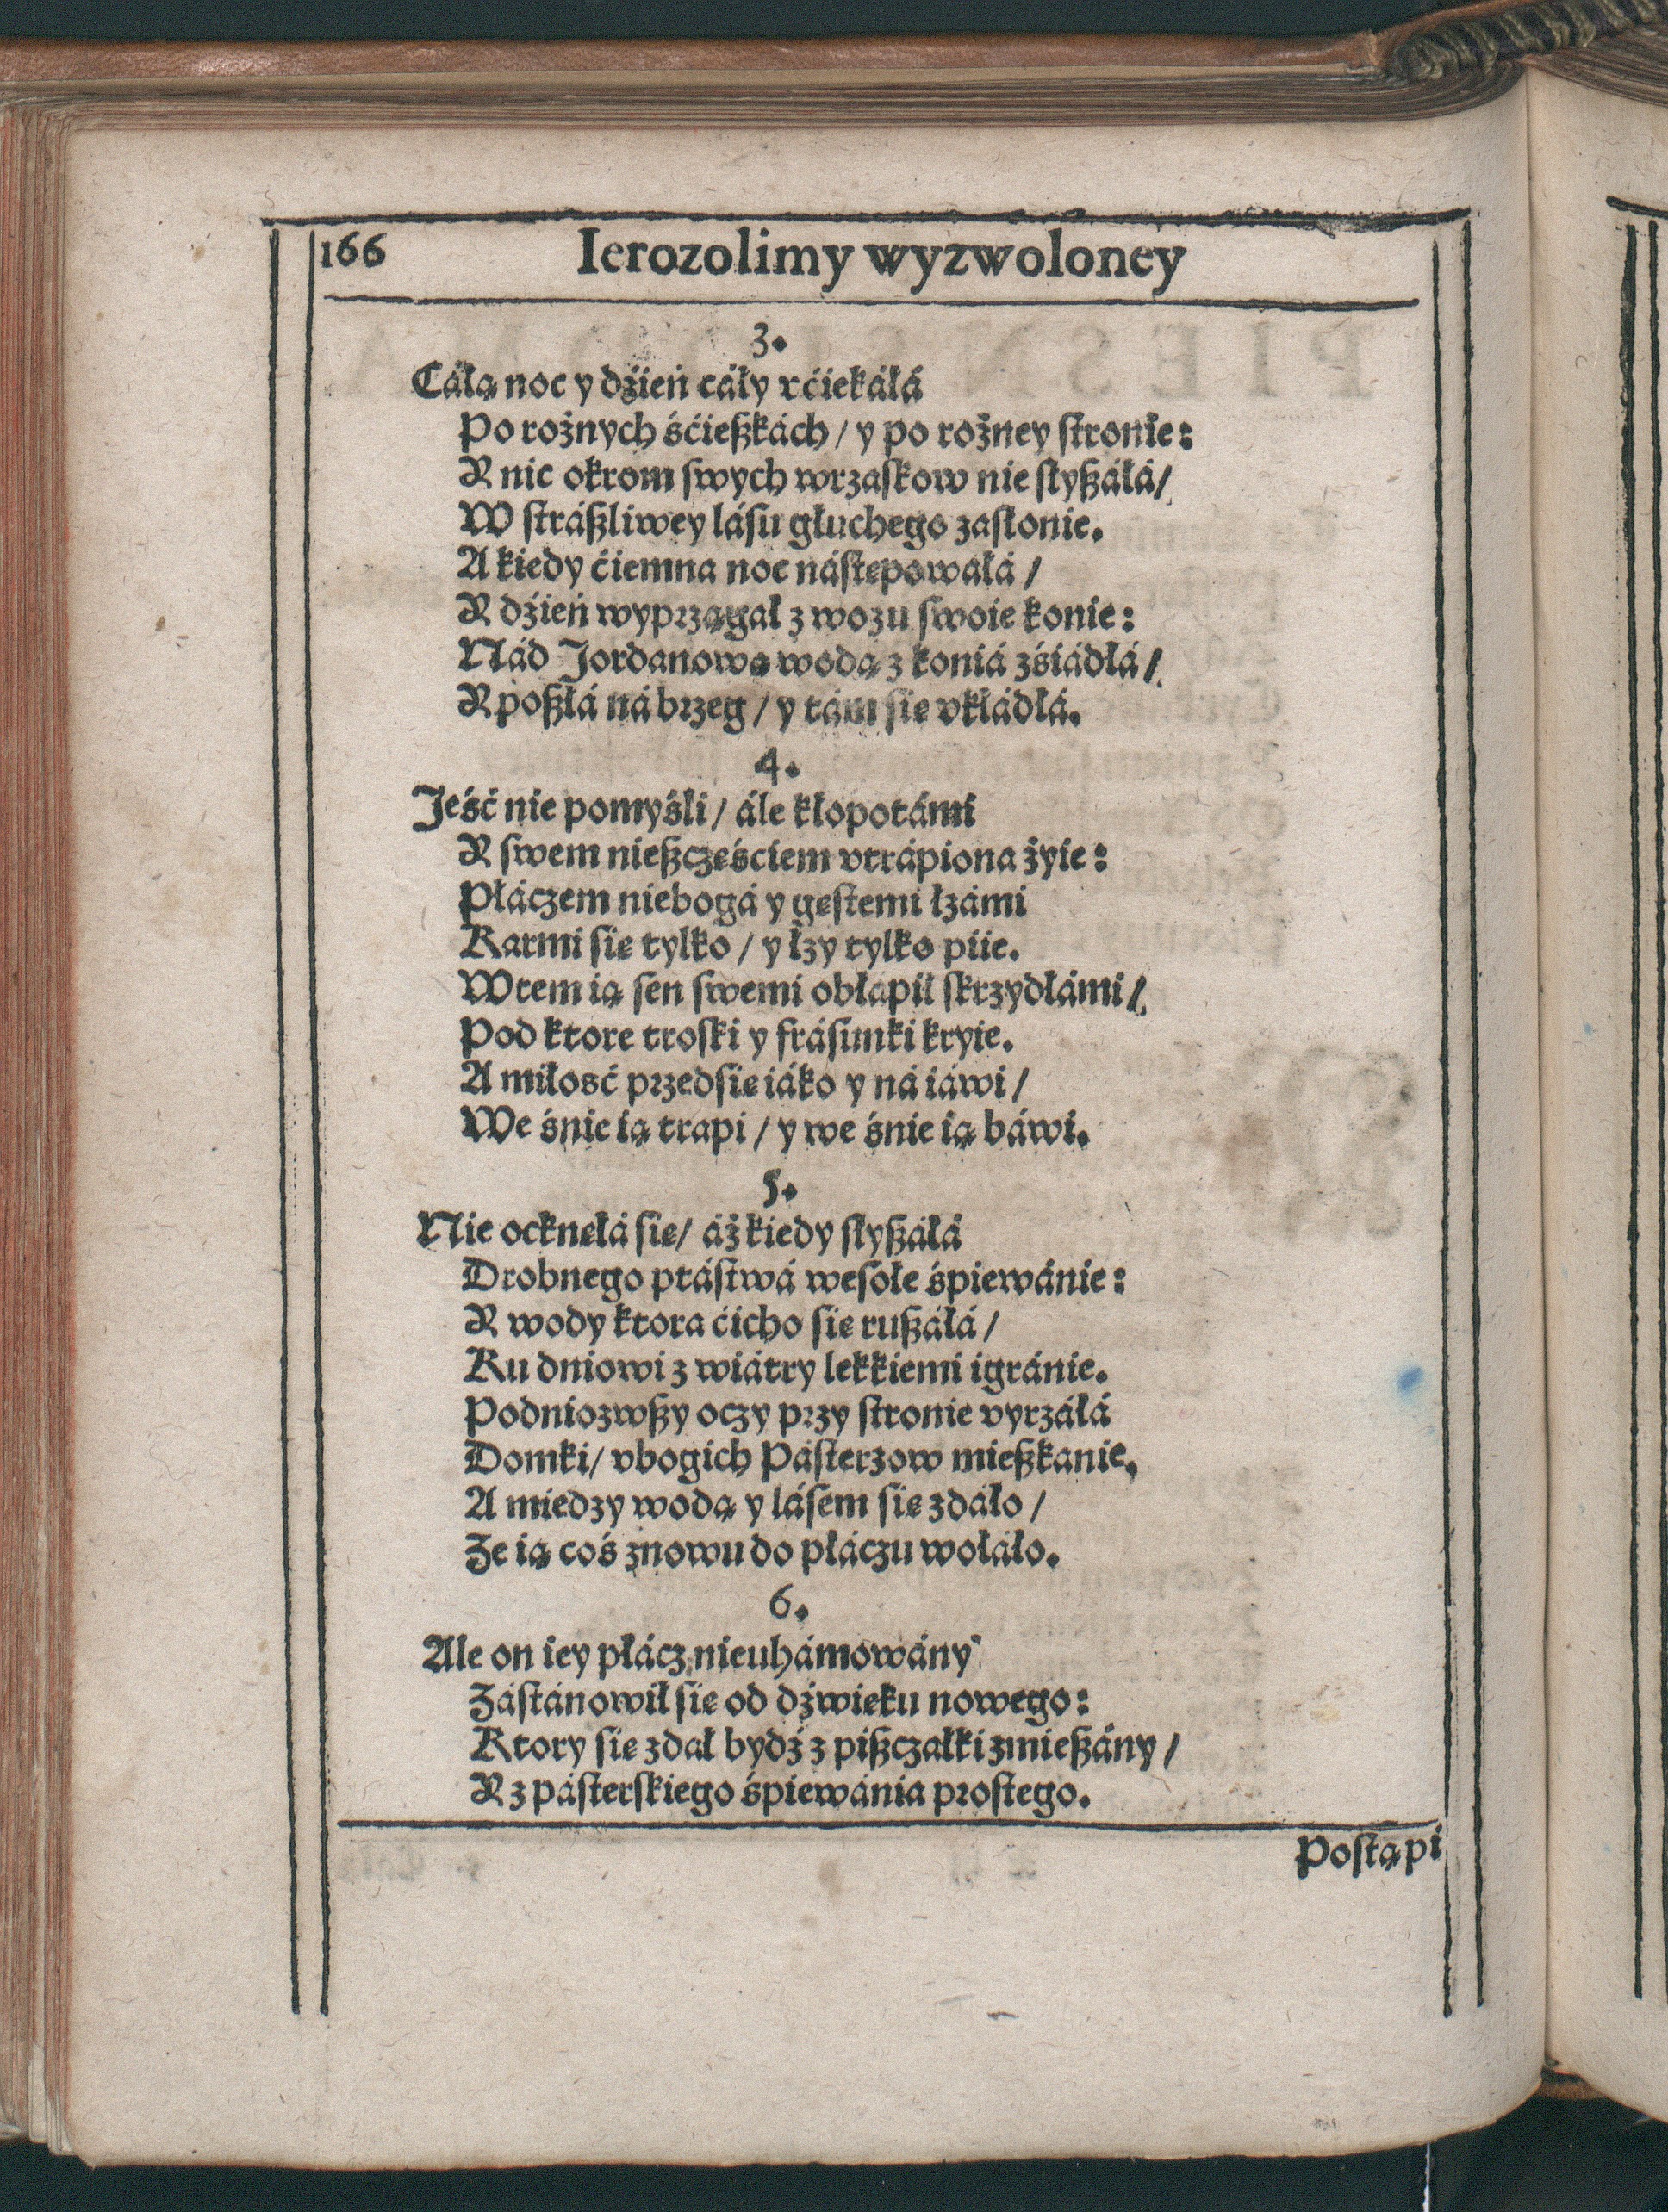 166 Ierozolimy wyzwoloney
3.
Cáłą noc y dźień cáły vćiekáłá
Po rożnych śćieszkách / y po rożney stronie:
Y nic okrom swych wrzaskow nie słyszáłá /
W strászliwey lásu głuchego zasłonie.
A kiedy ćiemna noc nástępowáłá /
Y dźień wyprzągał z wozu swoie konie:
Nád Jordanową wodą z koniá zśiádłá /
Y poszłá ná brzeg / y tám się vkłádłá.
4.
Jeść nie pomyśli / ále kłopotámi
Y swem nieszczęściem vtrápiona żyie:
Płáczem niebogá y gęstemi łzámi
Karmi się tylko / y łzy tylko piie.
Wtem ią sen swemi obłapił skrzydłámi /
Pod ktore troski y frásunki kryie.
A miłość przedsię iáko y ná iáwi /
We śnie ią trapi / y we śnie ią báwi.
5.
Nie ocknęłá się / áż kiedy słyszáłá
Drobnego ptástwá wesołe śpiewánie:
Y wody ktora ćicho się ruszáłá /
Ku dniowi z wiátry lekkiemi igránie.
Podniozwszy oczy przy stronie vyrzáłá
Domki / vbogich Pásterzow mieszkanie.
A miedzy wodą y lásem się zdáło /
Ze ią coś znowu do płáczu wołáło.
6.
Ale on iey płácz nieuhámowány
Zástánowił się od dźwięku nowego:
Ktory się zdał bydź z piszczałki zmieszány /
Y z pásterskiego śpiewánia prostego.
Postąpi